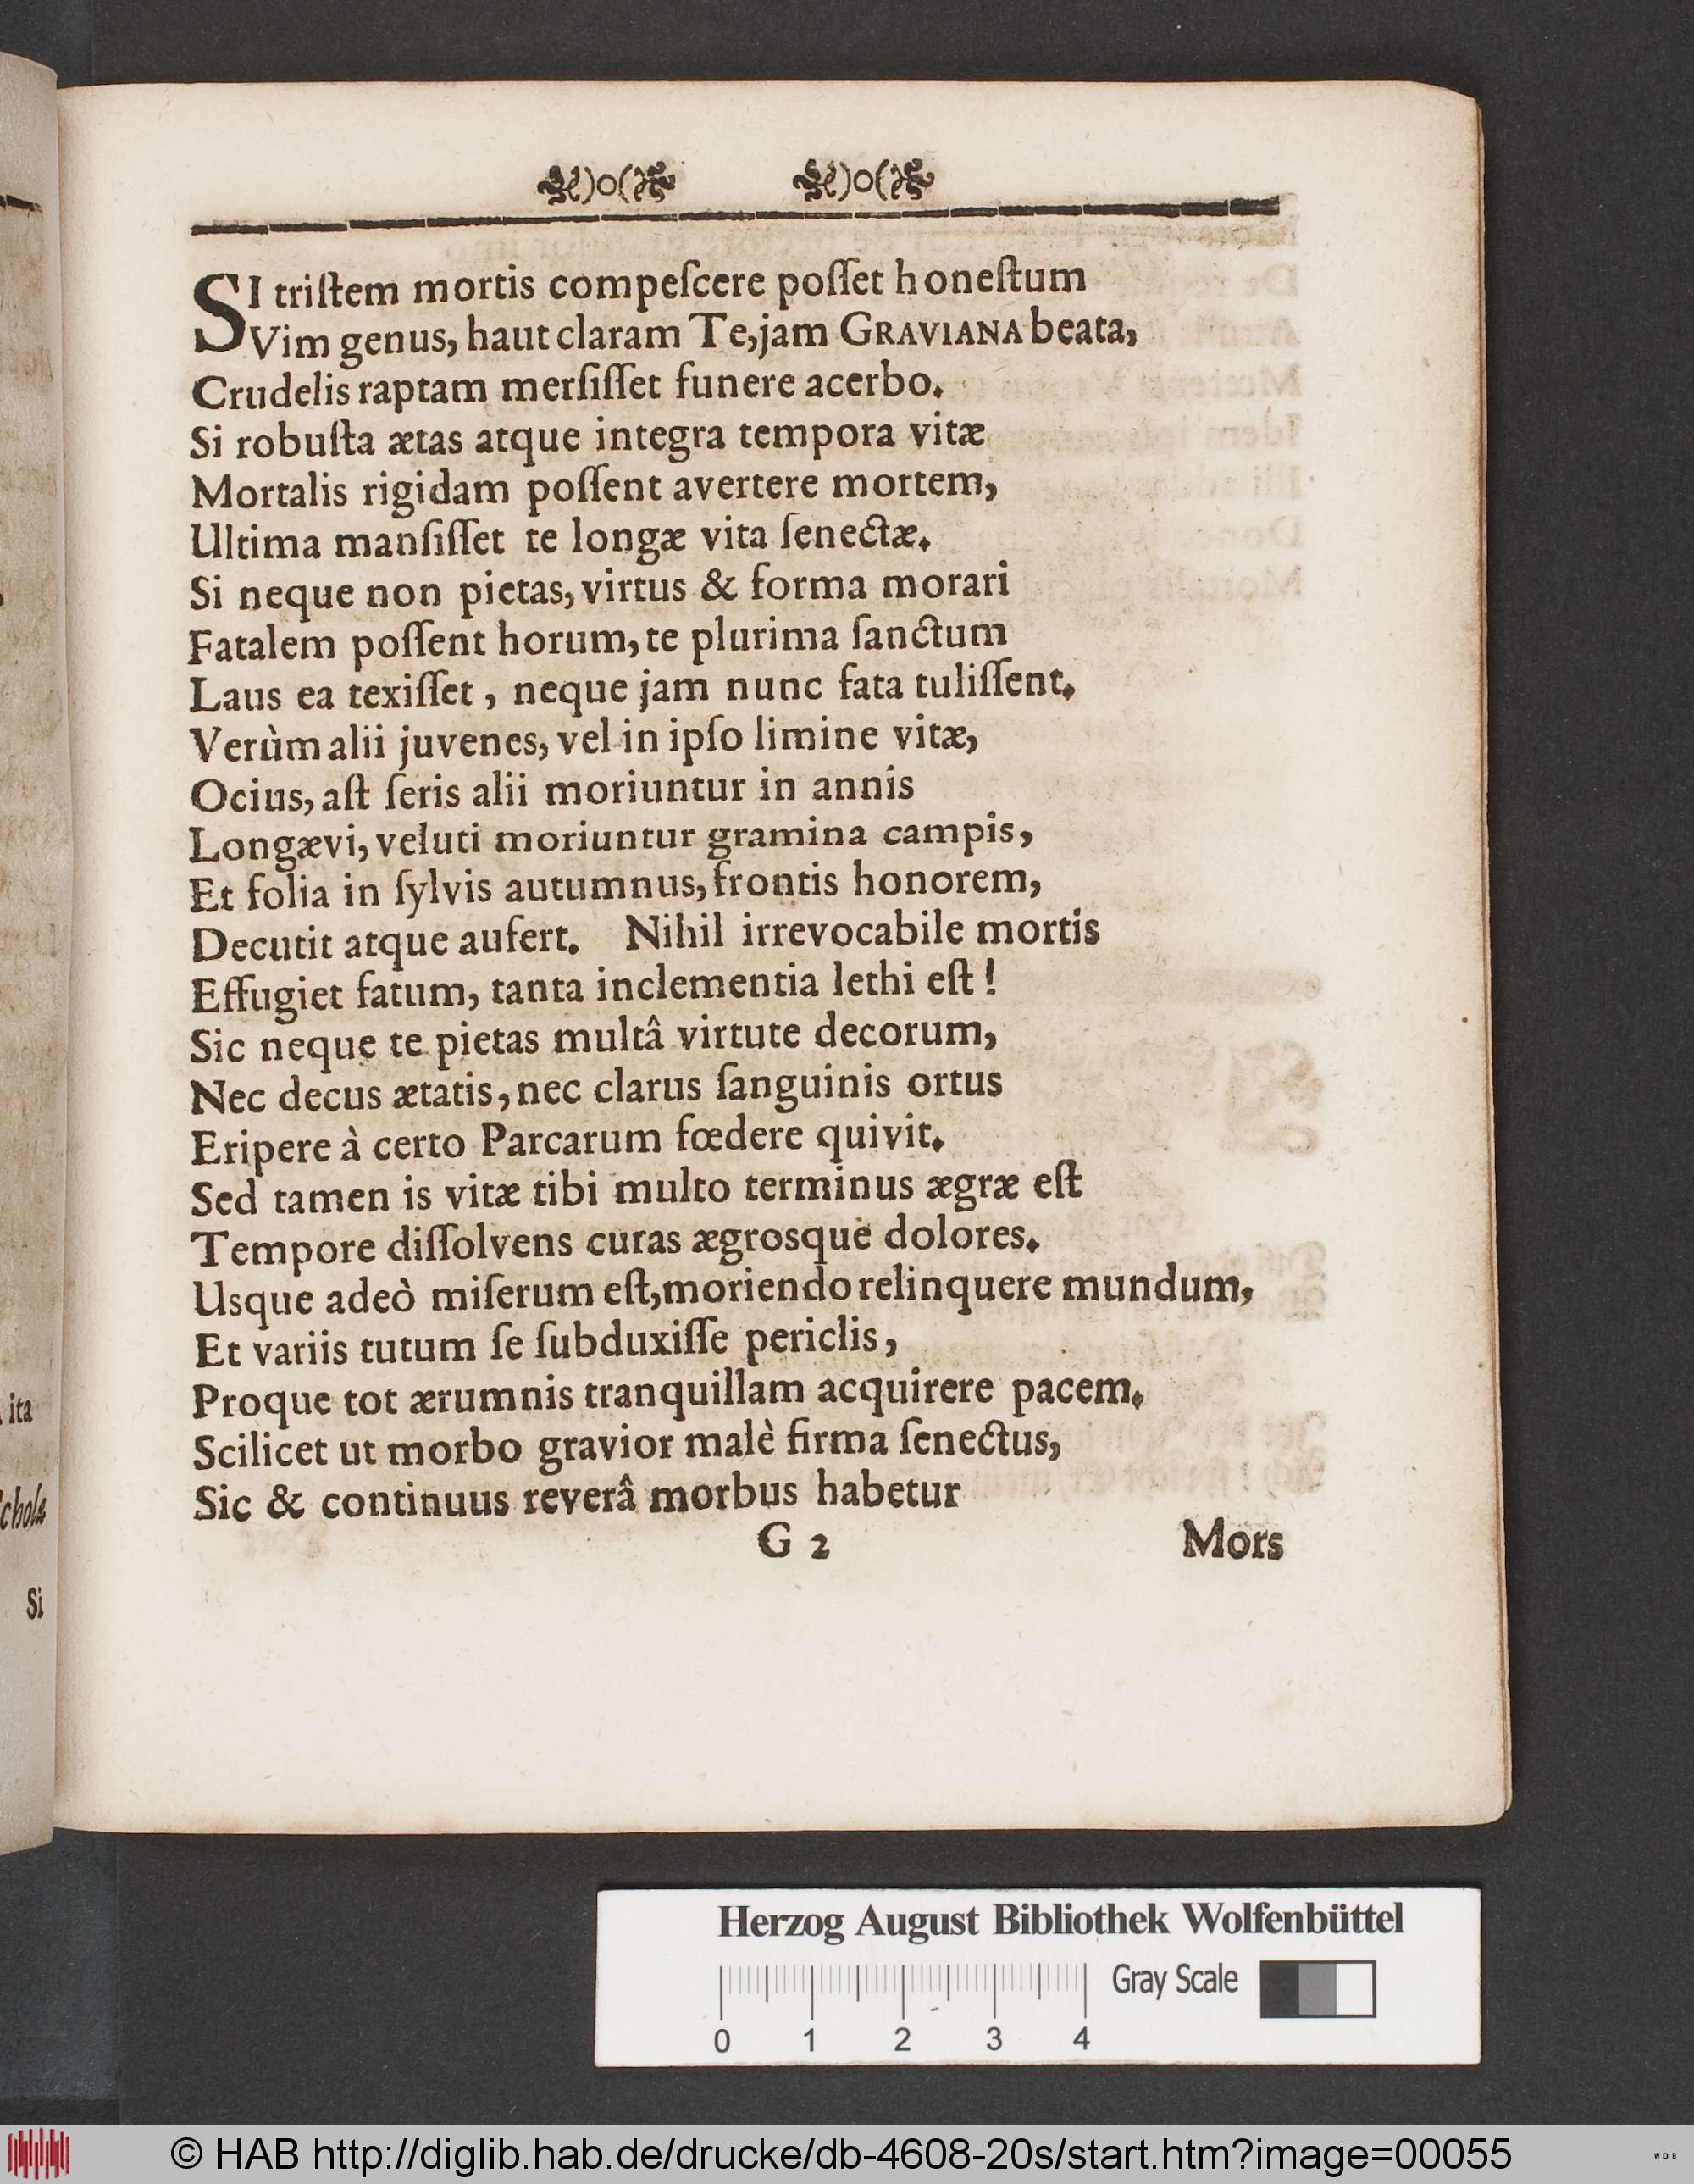 SI triſtem mortis compeſcere poſſet honeſtum
Vim genus, haut claram Te, jam GRAVIANA beata,
Crudelis raptam merſiſſet funere acerbo.
Si robuſta ætas atque integra tempora vitæ
Mortalis rigidam poſſent avertere mortem,
Ultima manſiſſet te longæ vita ſenectæ.
Si neque non pietas, virtus & forma morari
Fatalem poſſent horum, te plurima ſanctum
Laus ea texiſſet, neque jam nunc fata tuliſſent.
Verùm alii juvenes, vel in ipſo limine vitæ,
Ocius, aſt ſeris alii moriuntur in annis
Longævi, veluti moriuntur gramina campis,
Et folia in ſylvis autumnus, frontis honorem,
Decutit atque aufert. Nihil irrevocabile mortis
Effugiet fatum, tanta inclementia lethi eſt!
Sic neque te pietas multâ virtute decorum,
Nec decus ætatis, nec clarus ſanguinis ortus
Eripere à certo Parcarum fœdere quivit.
Sed tamen is vitæ tibi multo terminus ægræ eſt
Tempore diſſolvens curas ægrosque dolores.
Usque adeò miſerum eſt, moriendo relinquere mundum,
Et variis tutum ſe ſubduxiſſe periclis,
Proque tot ærumnis tranquillam acquirere pacem.
Scilicet ut morbo gravior malè firma ſenectus,
Sic & continuus reverâ morbus habetur
G 2 Mors
ita
Si
Herzog August Bibliothek Wolfenbüttel
Gray Scale
0 1 2 3 4
© HAB http://diglib.hab.de/drucke/db-4608-20s/start.htm?image=00055
WDB